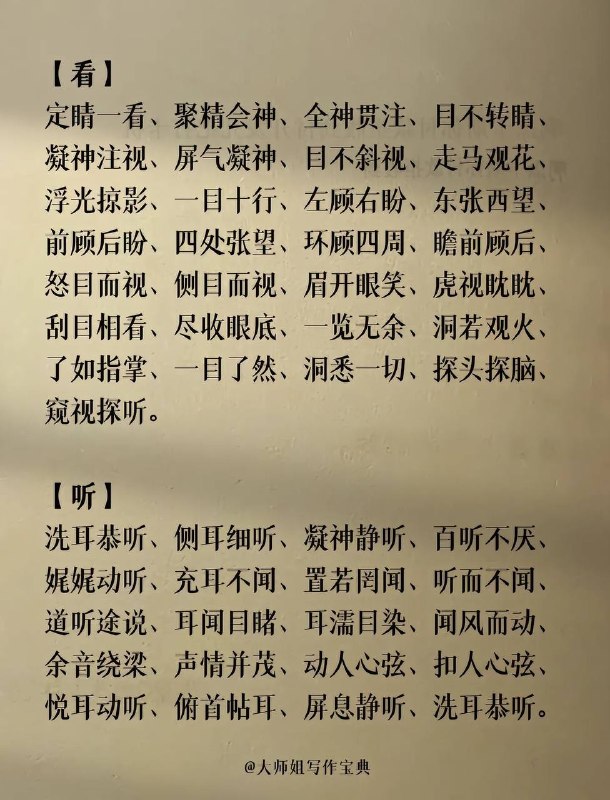 【看】
定睛一看、聚精会神、全神贯注、目不转睛、
凝神注视、屏气凝神、目不斜视、走马观花、
浮光掠影、一目十行、左顾右盼、东张西望、
前顾后盼、四处张望、环顾四周、瞻前顾后、
怒目而视、侧目而视、眉开眼笑、虎视眈眈、
刮目相看、尽收眼底、一览无余、洞若观火、
了如指掌、一目了然、洞悉一切、探头探脑、
窥视探听。
【听】
洗耳恭听、侧耳细听、凝神静听、百听不厌、
娓娓动听、充耳不闻、置若罔闻、听而不闻、
道听途说、耳闻目睹、耳濡目染、闻风而动、
余音绕梁、声情并茂、动人心弦、扣人心弦、
悦耳动听、俯首帖耳、屏息静听、洗耳恭听。
@大师姐写作宝典